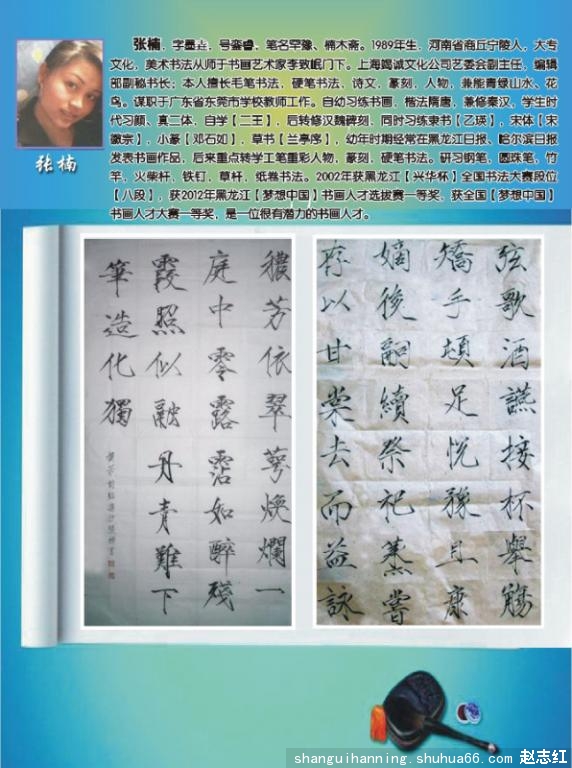 张楠，字墨垚，号銮睿，笔名罕豫、楠木斋。1989年生，河南省商丘宁陵人，大专
文化，美术书法从师于书画艺术家李致岷门下。上海竭诚文化公司艺委会副主任，编辑
部副秘书长；本人擅长毛笔书法，硬笔书法，诗文，篆刻，人物，兼能青绿山水、花
鸟。谋职于广东省东莞市学校教师工作。自幼习练书画，楷法隋唐，兼修秦汉，学生时
代习颜、真二体，自学【二王】，后转修汉魏碑刻，同时习练隶书【乙瑛】，宋体【宋
徽宗】，小篆【邓石如】，草书【兰亭序】，幼年时期经常在黑龙江日报、哈尔滨日报
发表书画作品，后来重点转学工笔重彩人物，篆刻，硬笔书法。研习钢笔、圆珠笔，竹
竿，火柴杆，铁钉，草杆，纸卷书法。2002年获黑龙江【兴华杯】全国书法大赛段位
【八段】，获2012年黑龙江【梦想中国】书画人才选拔赛一等奖，获全国【梦想中国】
书画人才大赛一等奖，是一位很有潜力的书画人才。
张楠
穠芳依翠萼煥爛一
庭中零露霑如醉殘
霞照似融丹青難下
筆造化獨
弦歌酒讌接杯舉觴
矯手頓足悅豫且康
嫡後嗣續祭祀蒸嘗
存以甘棠去而益詠
shanguihanning.shuhua66.com 赵志红